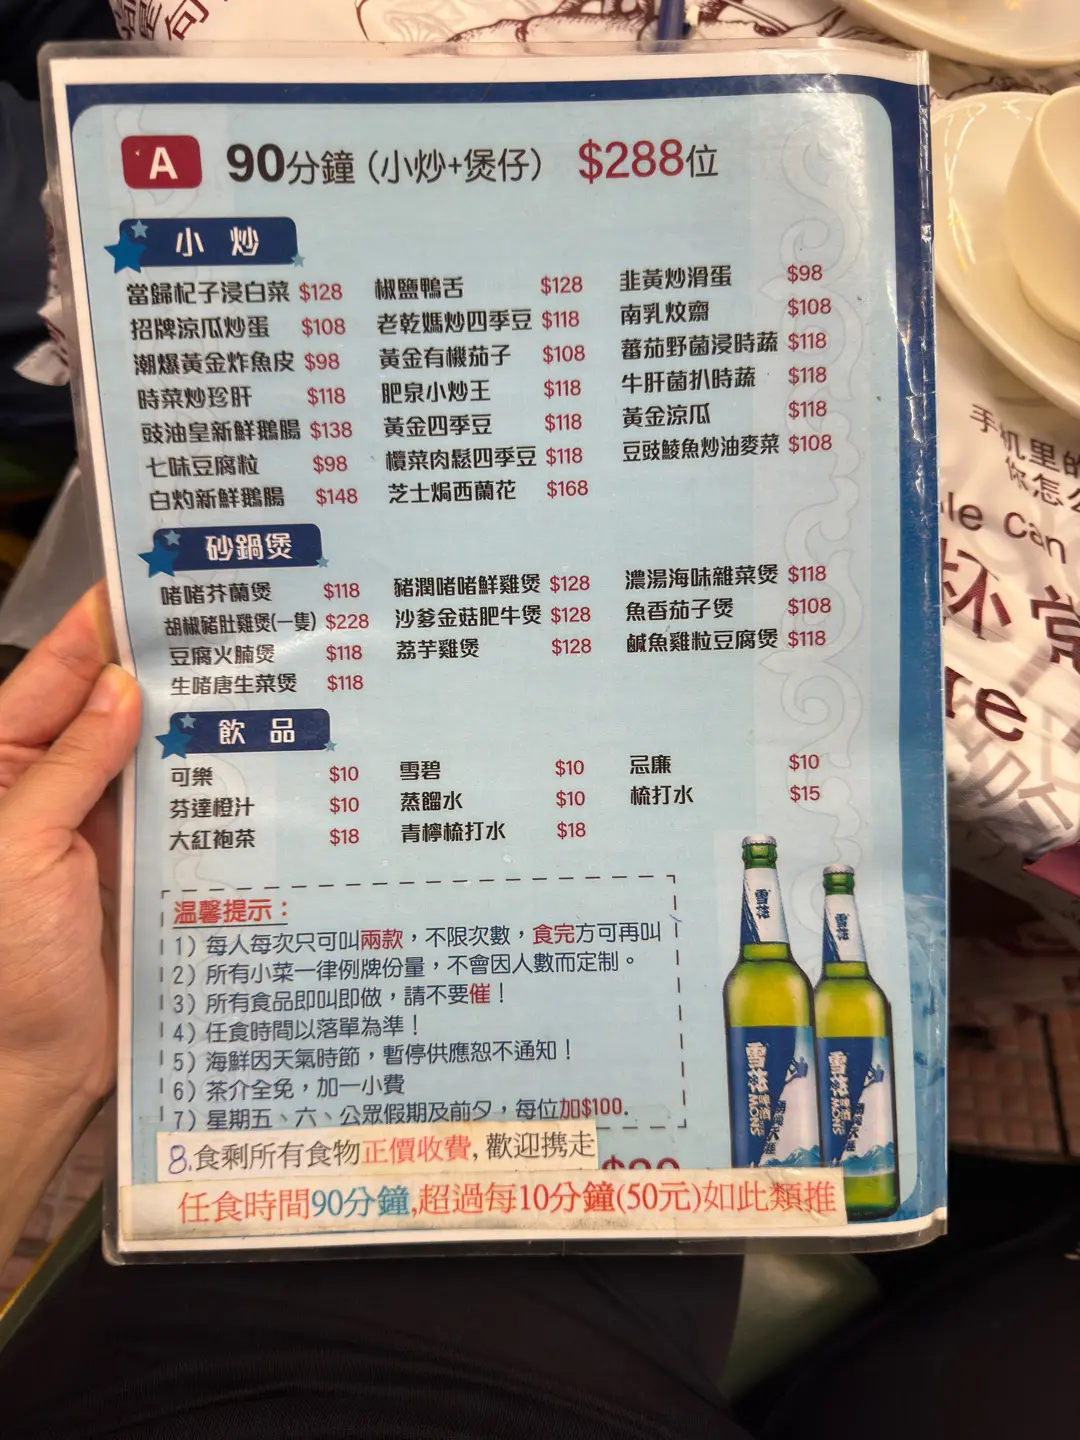 A 90分鐘（小炒+煲仔） $288位
小 炒
當歸杞子浸白菜 $128 椒鹽鴨舌 $128 韭黃炒滑蛋 $98
招牌涼瓜炒蛋 $108 老乾媽炒四季豆 $118 南乳炆齋 $108
潮爆黃金炸魚皮 $98 黃金有機茄子 $108 蕃茄野菌浸時蔬 $118
時菜炒珍肝 $118 肥泉小炒王 $118 牛肝菌扒時蔬 $118
豉油皇新鮮鵝腸 $138 黃金四季豆 $118 黃金涼瓜 $118
七味豆腐粒 $98 欖菜肉鬆四季豆 $118 豆豉鯪魚炒油麥菜 $108
白灼新鮮鵝腸 $148 芝士焗西蘭花 $168
砂鍋煲
啫啫芥蘭煲 $118 豬潤啫啫鮮雞煲 $128 濃湯海味雜菜煲 $118
胡椒豬肚雞煲(一隻) $228 沙爹金菇肥牛煲 $128 魚香茄子煲 $108
豆腐火腩煲 $118 荔芋雞煲 $128 鹹魚雞粒豆腐煲 $118
生啫唐生菜煲 $118
飲 品
可樂 $10 雪碧 $10 忌廉 $10
芬達橙汁 $10 蒸餾水 $10 梳打水 $15
大紅袍茶 $18 青檸梳打水 $18
溫馨提示：
1）每人每次只可叫兩款，不限次數，食完方可再叫
2）所有小菜一律例牌份量，不會因人數而定制。
3）所有食品即叫即做，請不要催！
4）任食時間以落單為準！
5）海鮮因天氣時節，暫停供應恕不通知！
6）茶介全免，加一小費
7）星期五、六、公眾假期及前夕，每位加$100.
8.食剩所有食物正價收費,歡迎携走
任食時間90分鐘,超過每10分鐘(50元)如此類推
雪花
雪花
雪花
啤酒
雪花
啤酒
手机里的
你怎么
can
杯